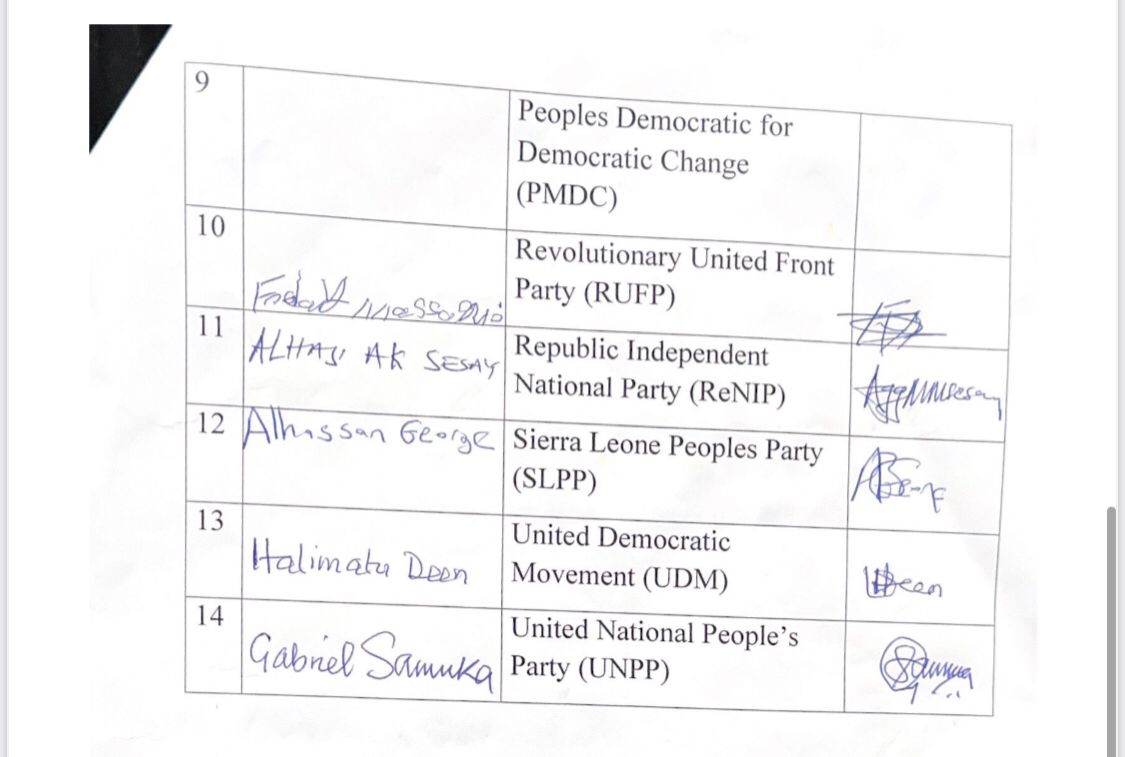 9
Peoples Democratic for
Democratic Change
(PMDC)
10
Revolutionary United Front
Party (RUFP)
11
ALHAJI AK SESAY
Republic Independent
National Party (ReNIP)
12
Alhassan George
Sierra Leone Peoples Party
(SLPP)
13
Halimatu Deen
United Democratic
Movement (UDM)
14
Gabriel Samuka
United National People’s
Party (UNPP)